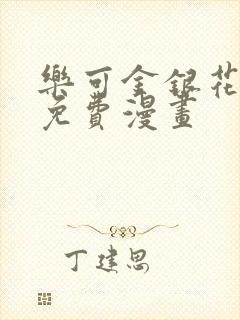 樂可金銀花
免費漫畫
丁建思